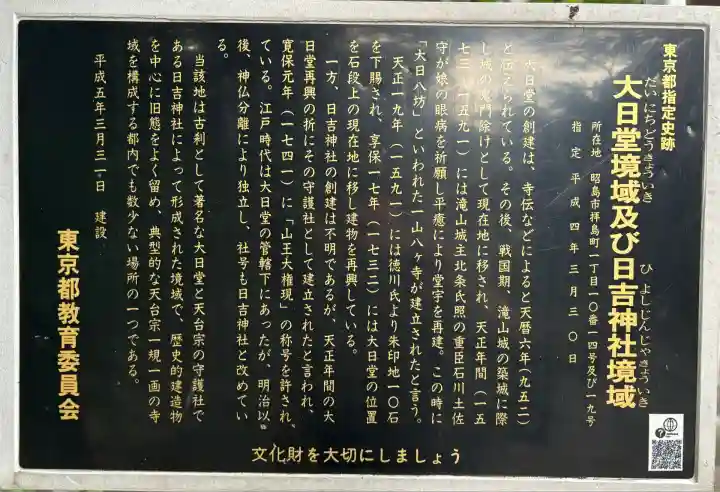 東京都指定史跡
大日堂境域及び日吉神社境域
だいにちどうきょういき
ひよしじんじゃきょういき
所在地 昭島市拝島町一丁目一〇番一四号及び一九号
指定 平成四年三月三〇日
大日堂の創建は、寺伝などによると天暦六年(九五二)
と伝えられている。その後、戦国期、滝山城の築城に際
し城の鬼門除けとして現在地に移され、天正年間(一五
七三~一五九一)には滝山城主北条氏照の重臣石川土佐
守が娘の眼病を祈願し平癒により堂宇を再建。この時に
「大日八坊」といわれた一山八ヶ寺が建立されたと言う。
天正一九年(一五九一)には徳川氏より朱印地一〇石
を下賜され、享保一七年(一七三二)には大日堂の位置
を石段上の現在地に移し建物を再興している。
一方、日吉神社の創建は不明であるが、天正年間の大
日堂再興の折にその守護社として建立されたと言われ、
寛保元年(一七四一)に「山王大権現」の称号を許され
ている。江戸時代は大日堂の管轄下にあったが、明治以
後、神仏分離により独立し、社号も日吉神社と改めてい
る。
当該地は古刹として著名な大日堂と天台宗の守護社で
ある日吉神社によって形成された境域で、歴史的建造物
を中心に旧態をよく留め、典型的な天台宗一規一画の寺
域を構成する都内でも数少ない場所の一つである。
平成五年三月三一日 建設
東京都教育委員会
文化財を大切にしましょう